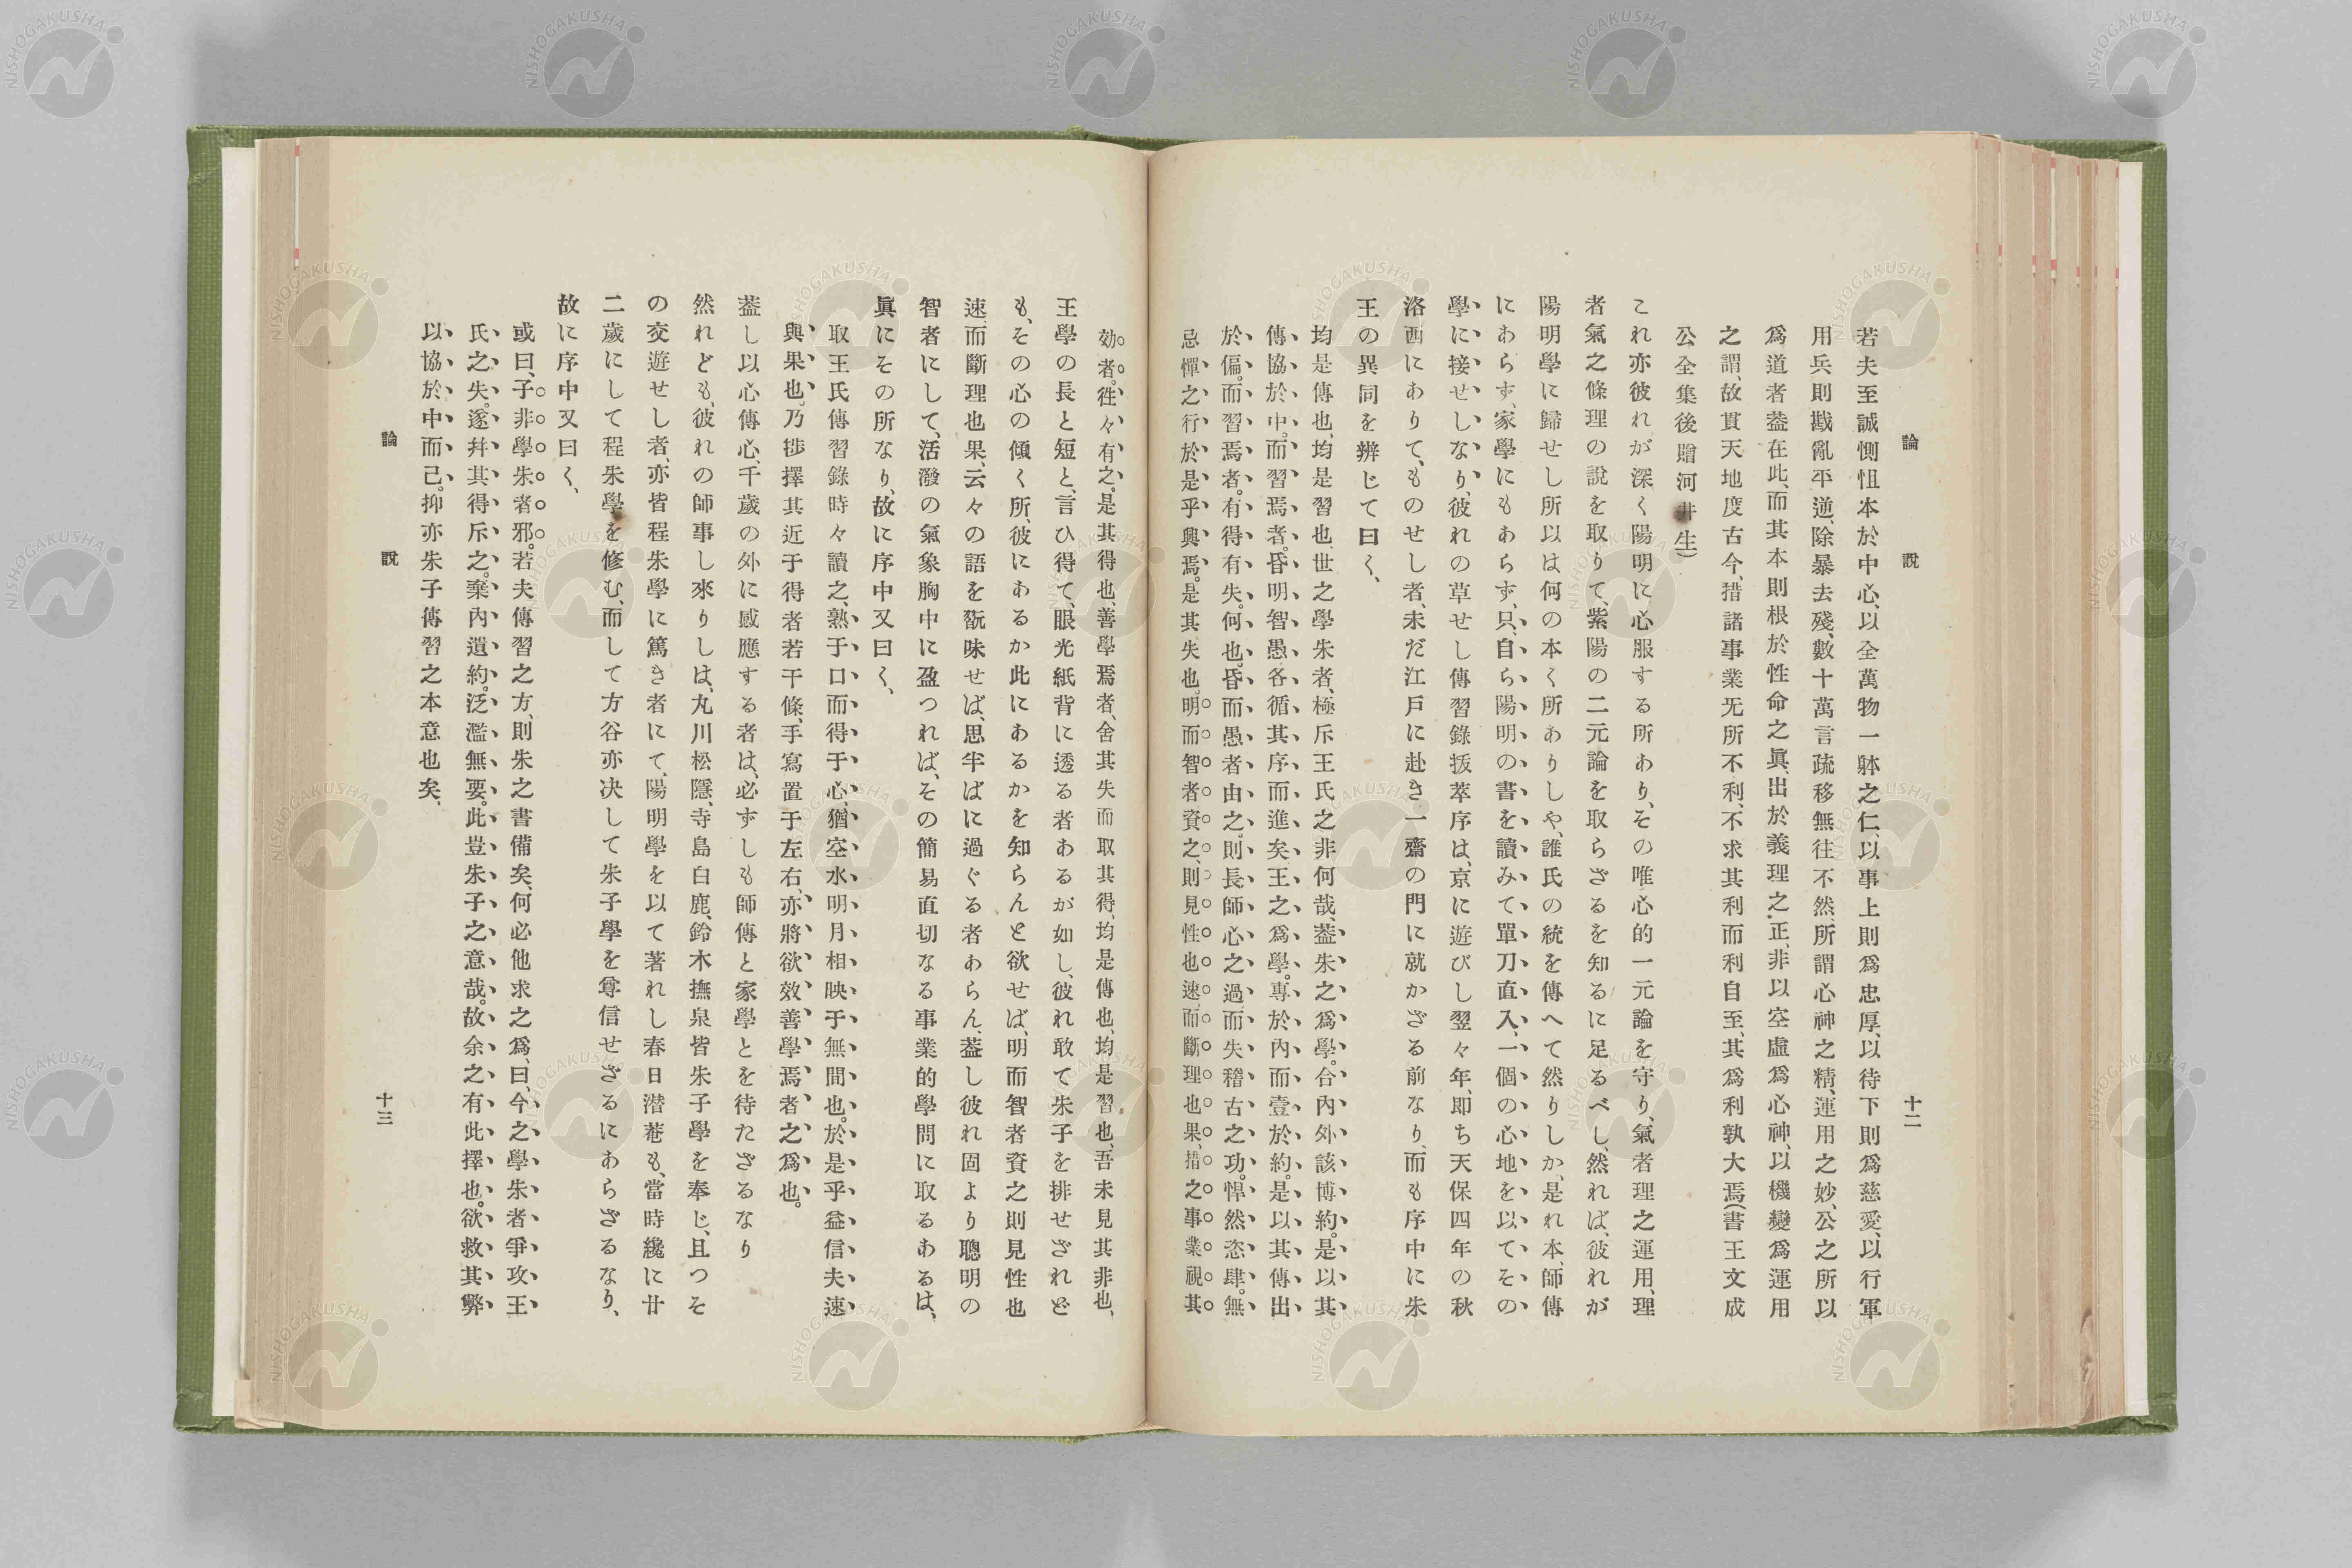 論說
十二
若夫至誠惻怛本於中心、以全萬物一躰之仁、以事上則爲忠厚、以待下則爲慈愛、以行軍
用兵則戡亂平逆、除暴去殘、數十萬言疏移無往不然、所謂心神之精、運用之妙、公之所以
爲道者葢在此、而其本則根於性命之眞、出於義理之正、非以空虛爲心神、以機變爲運用
之謂、故貫天地度古今、措諸事業无所不利、不求其利而利自至、其爲利孰大焉(書王文成
公全集後贈河井生)
これ亦彼れが深く陽明に心服する所あり、その唯心的一元論を守り、氣者理之運用、理
者氣之條理の說を取りて、紫陽の二元論を取らざるを知るに足るべし、然れば、彼れが
陽明學に歸せし所以は何の本く所ありしや、誰氏の統を傳へて然りしか、是れ本、師傳
にあらず、家學にもあらず、只、自ら陽明の書を讀みて、單刀直入、一個の心地を以てその
學に接せしなり、彼れの草せし傳習錄拔萃序は、京に遊びし翌々年、即ち天保四年の秋
洛西にありて、ものせし者、未だ江戸に赴き一齋の門に就かざる前なり、而も序中に朱
王の異同を辨じて曰く、
均是傳也、均是習也、世之學朱者、極斥王氏之非何哉、葢朱之爲學。合內外該博約。是以其
傳協於中。而習焉者。昏明智愚各循其序而進矣、王之爲學。專於內而壹於約。是以其傳出
於偏。而習焉者。有得有失。何也、昏而愚者由之。則長師心之過而失稽古之功。悍然恣肆。無
忌憚之行於是乎興焉。是其失也。明而智者資之、則見性也速、而斷理也果、措之事業視其
効者。徃々有之。是其得也、善學焉者、舍其失而取其得、均是傳也、均是習也、吾未見其非也、
王學の長と短と、言ひ得て、眼光紙背に透る者あるが如し、彼れ敢て朱子を排せざれど
も、その心の傾く所、彼にあるか此にあるかを知らんと欲せば、明而智者資之則見性也
速、而斷理也果、云々の語を翫味せば、思半ばに過ぐる者あらん、葢し彼れ固より聰明の
智者にして、活潑の氣象胸中に盈つれば、その簡易直切なる事業的學問に取るあるは、
眞にその所なり、故に序中又曰く、
取王氏傳習錄時々讀之、熟于口而得于心、猶空水明月相映于無間也。於是乎益信夫速
與果也。乃抄擇其近于得者若干條、手寫置于左右、亦將欲效善學焉者之爲也。
葢し以心傳心、千歲の外に感應する者は、必ずしも師傳と家學とを待たざるなり
然れども、彼れの師事し來りしは、丸川松隱、寺島白鹿、鈴木撫泉皆朱子學を奉じ、且つそ
の交遊せし者、亦皆程朱學に篤き者にて、陽明學を以て著れし春日潜菴も、當時纔に廿
二歲にして程朱學を修む、而して方谷亦决して朱子學を尊信せざるにあらざるなり、
故に序中又曰く、
或曰、子非學朱者邪。若夫傳習之方、則朱之書備矣、何必他求之爲、曰、今之學朱者爭攻王
氏之失。遂幷其得斥之。棄內遺約。泛濫無要。此豈朱子之意哉。故余之有此擇也。欲救其弊
以協於中而已。抑亦朱子傳習之本意也矣、
論說
十三